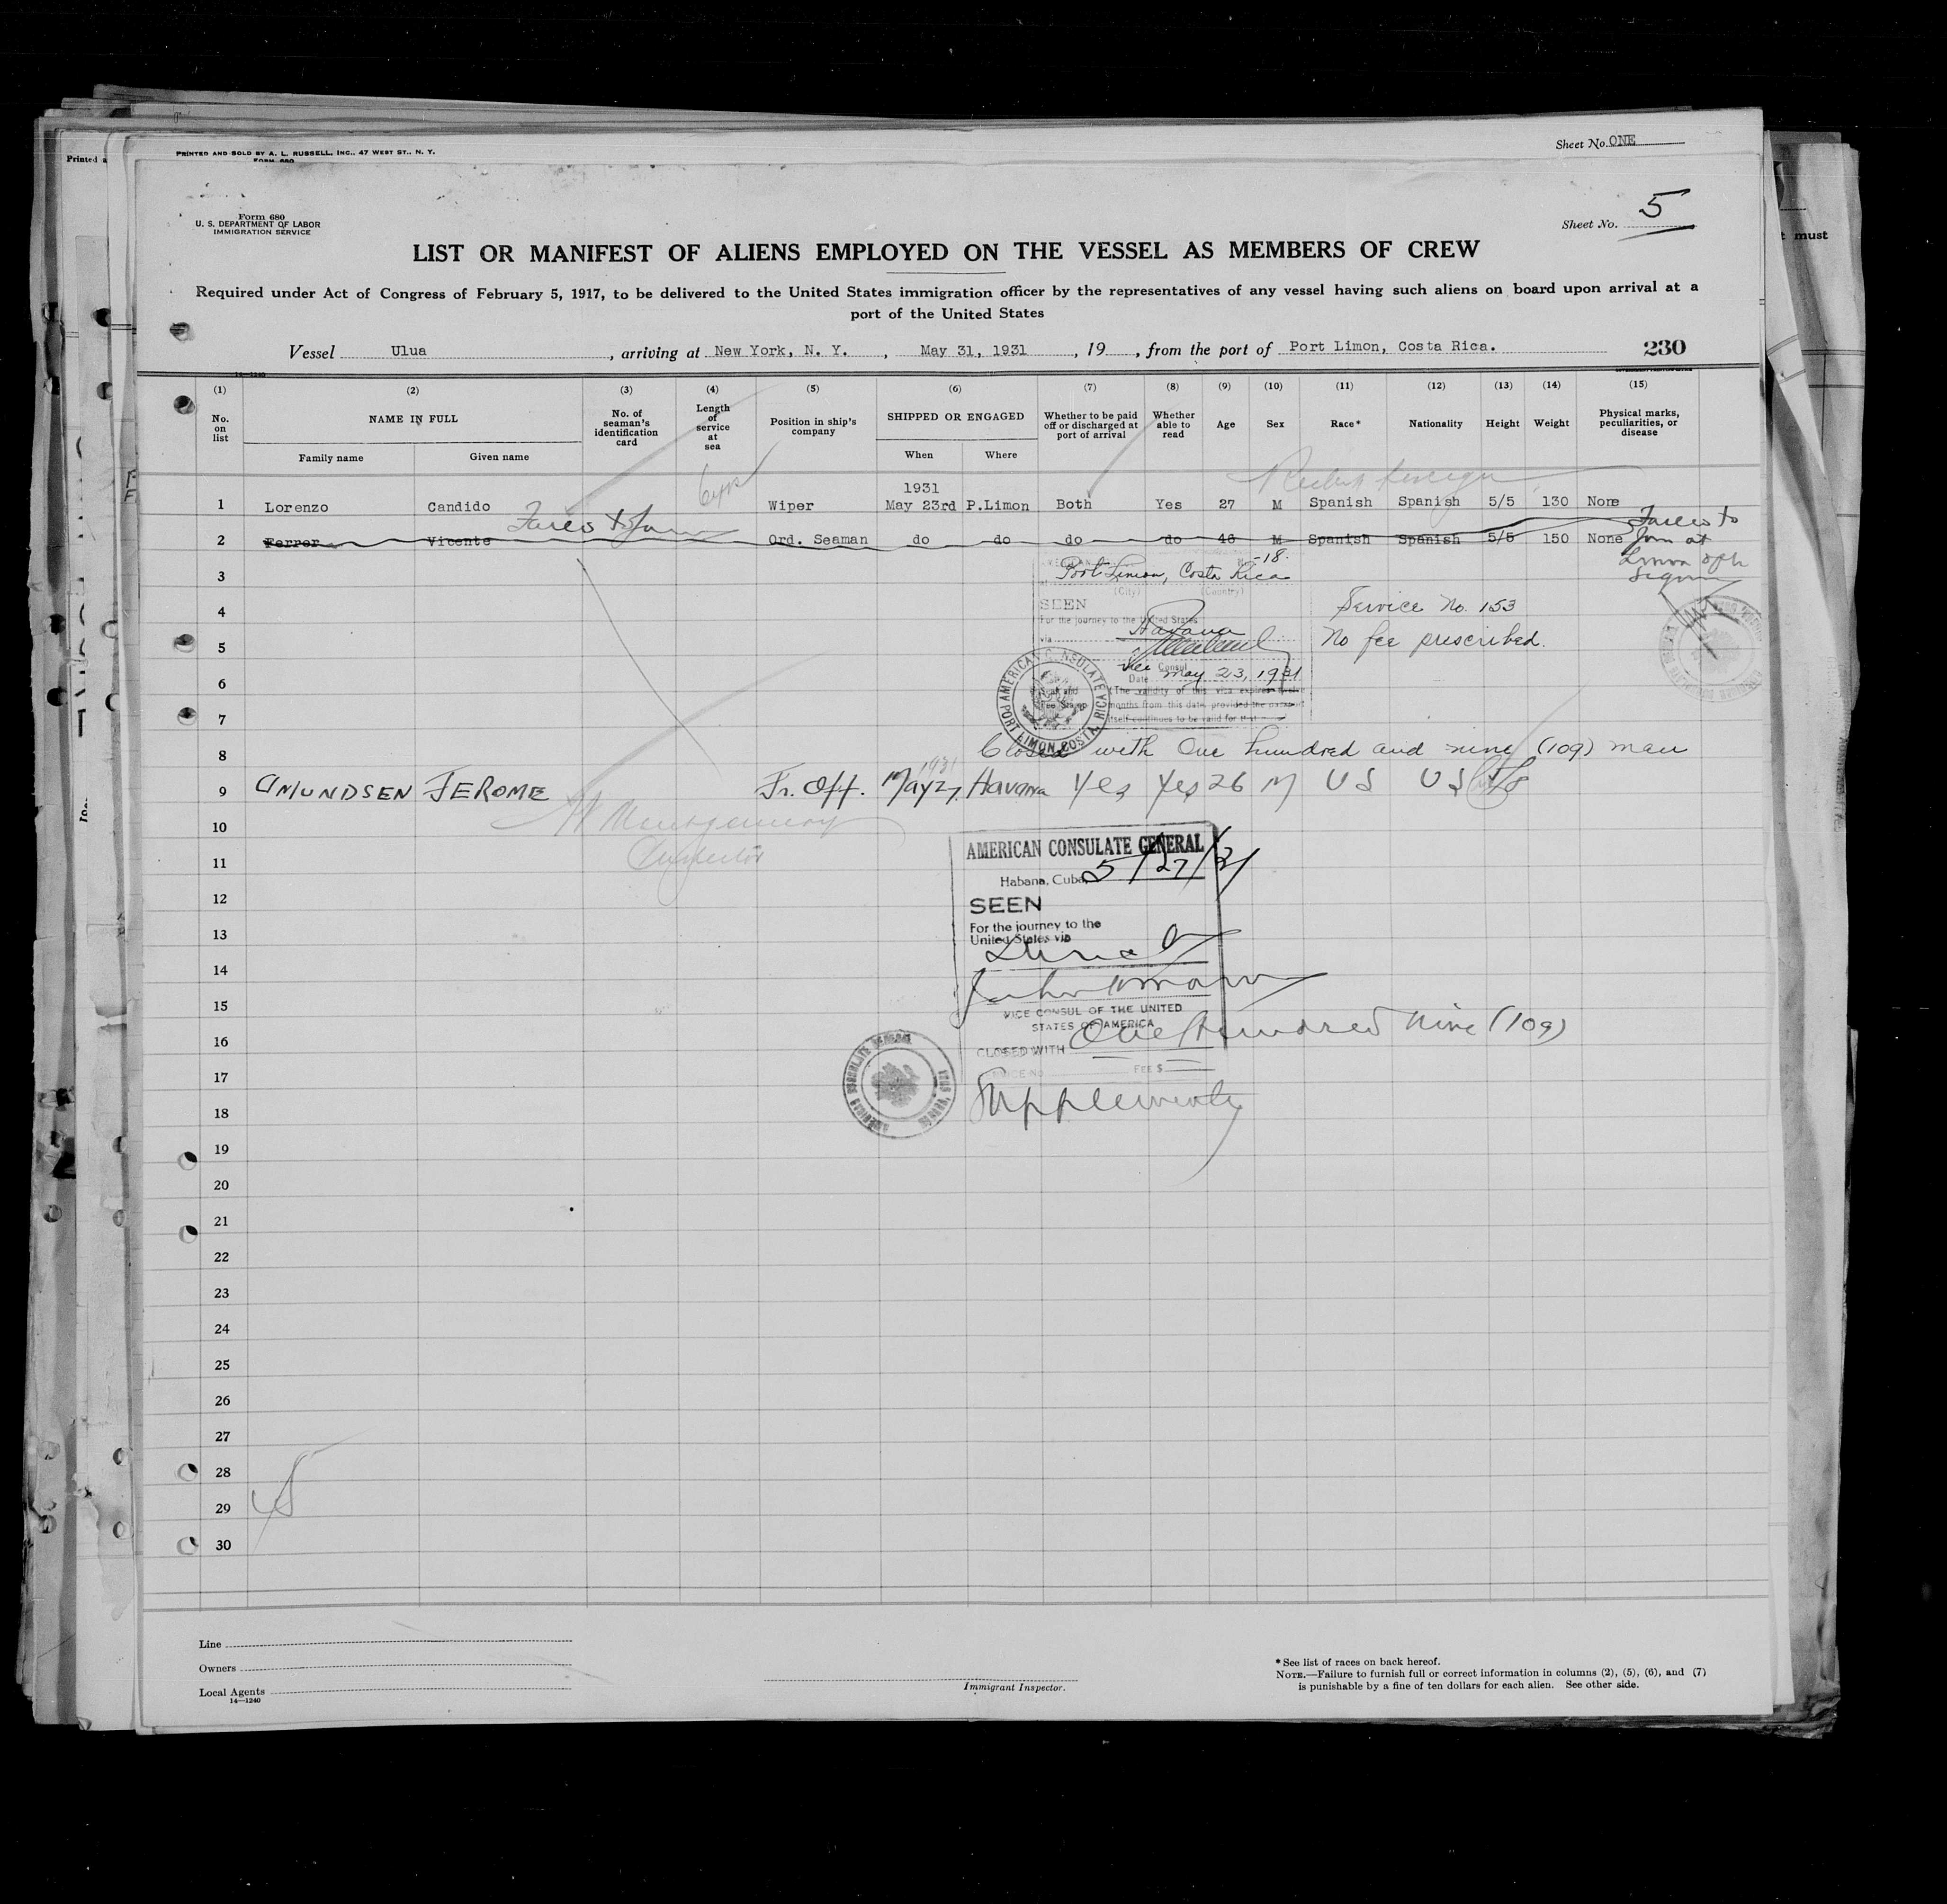 Printed a
PRINTED AND SOLD BY A. L. RUSSELL, INC., 47 WEST ST., N. Y.
FORM 680
Sheet No. ONE
Form 680
U. S. DEPARTMENT OF LABOR
IMMIGRATION SERVICE
Sheet No. 5
t must
LIST OR MANIFEST OF ALIENS EMPLOYED ON THE VESSEL AS MEMBERS OF CREW
Required under Act of Congress of February 5, 1917, to be delivered to the United States immigration officer by the representatives of any vessel having such aliens on board upon arrival at a
port of the United States
Vessel Ulua, arriving at New York, N. Y., May 31, 1931, 19, from the port of Port Limon, Costa Rica. 230
14-1240
(1) (2) (3) (4) (5) (6) (7) (8) (9) (10) (11) (12) (13) (14) (15)
No. on list
NAME IN FULL
Family name
Given name
No. of seaman's identification card
Length of service at sea
Position in ship's company
SHIPPED OR ENGAGED
When
Where
Whether to be paid off or discharged at port of arrival
Whether able to read
Age
Sex
Race*
Nationality
Height
Weight
Physical marks, peculiarities, or disease
1931
1 Lorenzo Candido Wiper May 23rd P.Limon Both Yes 27 M Spanish Spanish 5/5 130 None
2 Ferrer Vicente Ord. Seaman do do do do 46 M Spanish Spanish 5/5 150 None
to
at
Limon
3
-18-
Port Limon, Costa Rica
(City) (Country)
4
SEEN
For the journey to the United States
Service No. 153
5
via Havana
No fee prescribed.
6
Vice Consul
Date May 23, 1931
(The validity of this visa expires twelve
7
months from this date, provided the passport
itself continues to be valid for that
AMERICAN CONSULATE
PORT LIMON COSTA RICA
8 Closed with One hundred and nine (109) men
1931
9 AMUNDSEN JEROME Jr. Off. May 27, Havana Yes Yes 26 M US US
10 Montgomery
11 Inspector
AMERICAN CONSULATE GENERAL
Habana, Cuba, 5/27/31
12
SEEN
13
For the journey to the
United States via
14
15
VICE CONSUL OF THE UNITED
STATES OF AMERICA
16
CLOSED WITH One Hundred Nine (109)
17
FEE $
18
19
20
21
22
23
24
25
26
27
28
29
30
Line
Owners
Local Agents
14-1240
Immigrant Inspector.
* See list of races on back hereof.
NOTE.—Failure to furnish full or correct information in columns (2), (5), (6), and (7)
is punishable by a fine of ten dollars for each alien. See other side.